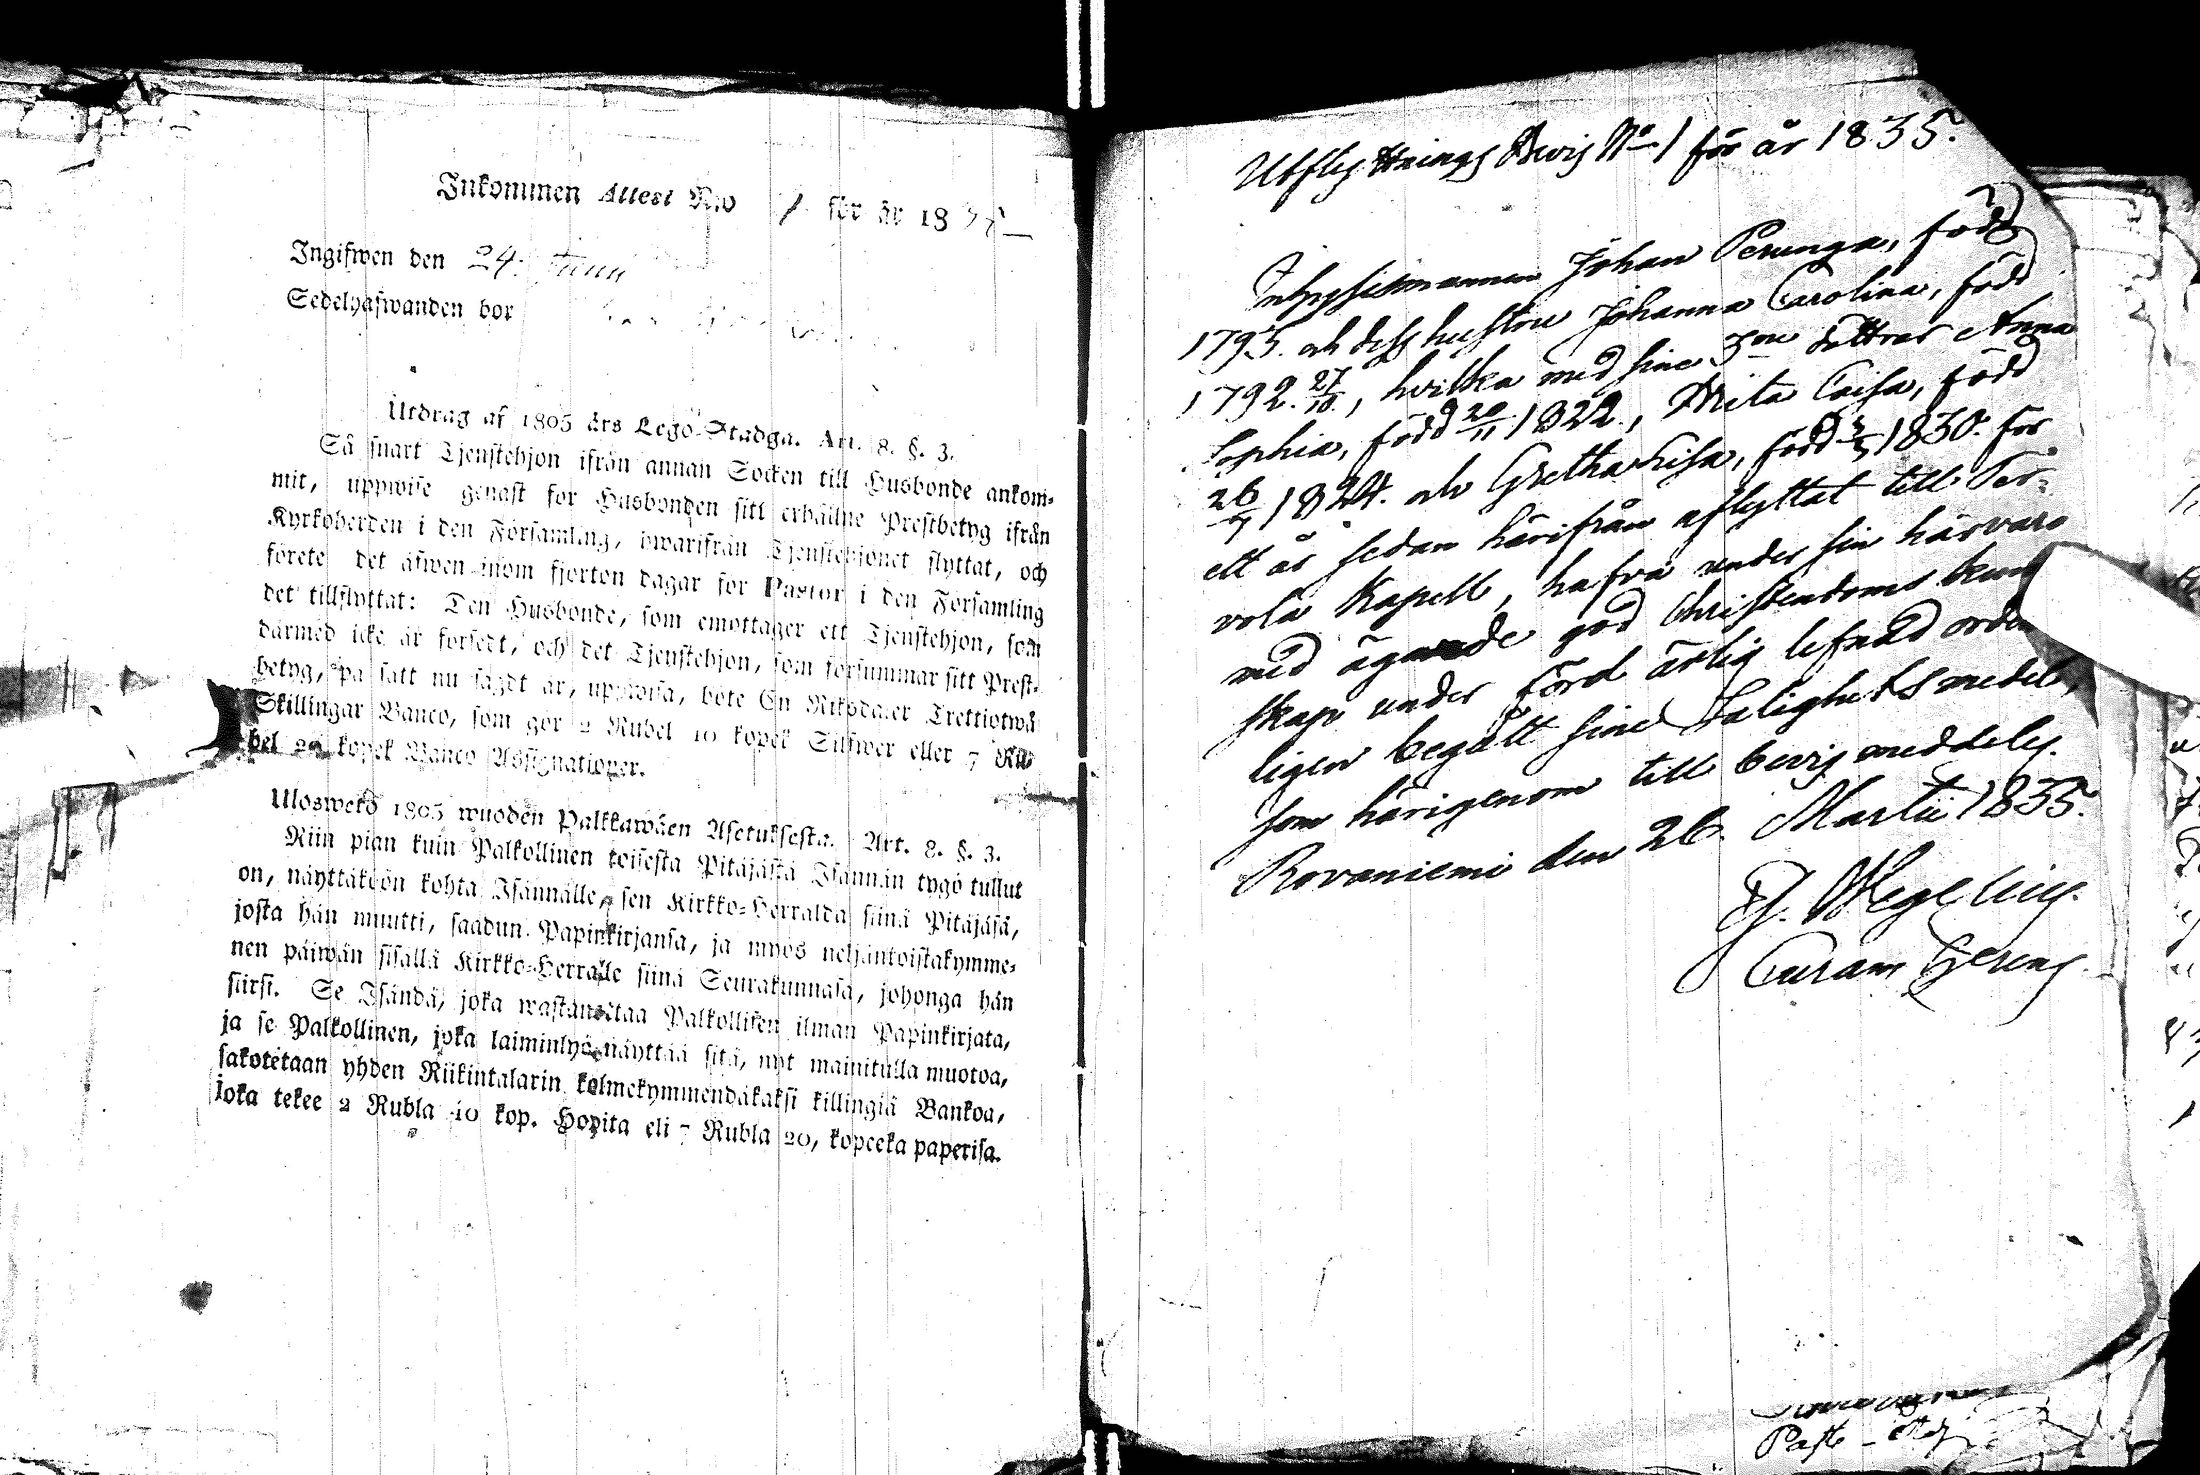 Inkommen Attest N:o 1 för år 18
Ingifwen den 24. Junii
Sedelhafwanden bor
Utdrag af 1805 års Lego-Stadga. Art. 8. §. 3.
Så snart Tjenstehjon ifrån annan Socken till Husbonde ankom-
mit, uppwise genast för Husbonden sitt erhållne Prestbetyg ifrån
Kyrkoherden i den Församling, hwarifrån Tjenstehjonet flyttat, och
förete det äfwen inom fjorton dagar för Pastor i den Församling
det tillflyttat: Den Husbonde, som emottager ett Tjenstehjon, som
därmed icke är försedt, och det Tjenstehjon, som försummar sitt Prest-
betyg, på sätt nu sagdt är, uppwisa, böte En Riksdaler Trettiotwå
Skillingar Banco, som gör 2 Rubel 10 kopek Silfwer eller 7 Ru-
bel 20 kopek Banco Assignationer.
Ulosweto 1805 wuoden Palkkawäen Asetuksesta. Art. 8. §. 3.
Niin pian kuin Palkollinen toisesta Pitäjästä Isännän tygö tullut
on, näyttäköön kohta Isännälle, sen Kirkko-Herralda siinä Pitäjäsä,
josta hän muutti, saadun Papinkirjansa, ja myös neljäntoistakymme-
nen päiwän sisällä Kirkko-Herralle siinä Seurakunnasa, johonga hän
siirsi. Se Isändä, joka wastanottaa Palkollisen ilman Papinkirjata,
ja se Palkollinen, joka laiminlyö näyttää sitä, nyt mainitulla muotoa,
sakotetaan yhden Riikintalarin kolmekymmendäkaksi killingiä Bankoa,
joka tekee 2 Rubla 10 kop. Hopita eli 7 Rubla 20, kopeeka paperisa.
Utflyttnings Bevis N:o 1 för år 1835.
Inhysismannen Johan Perunga, född
1795. och dess hustru Johanna Carolina, född
1792. 27/10., hvilka med sine 3ne döttrar Anna
Sophia, född 20/11 1822., Brita Caisa, född
26/7 1824. och Gretha Lisa, född 1830. för
ett år sedan härifrån aflyttat till Ter-
vola Kapell, hafva under sin härvaro
med ägande god Christendoms kun
skap under förd ärlig lefnad orden
ligen begått sine Salighetsmedel,
som härigenom till bevis meddeles.
Rovaniemi den 26. Martii 1835.
Wegelius.
Curam Gerens.